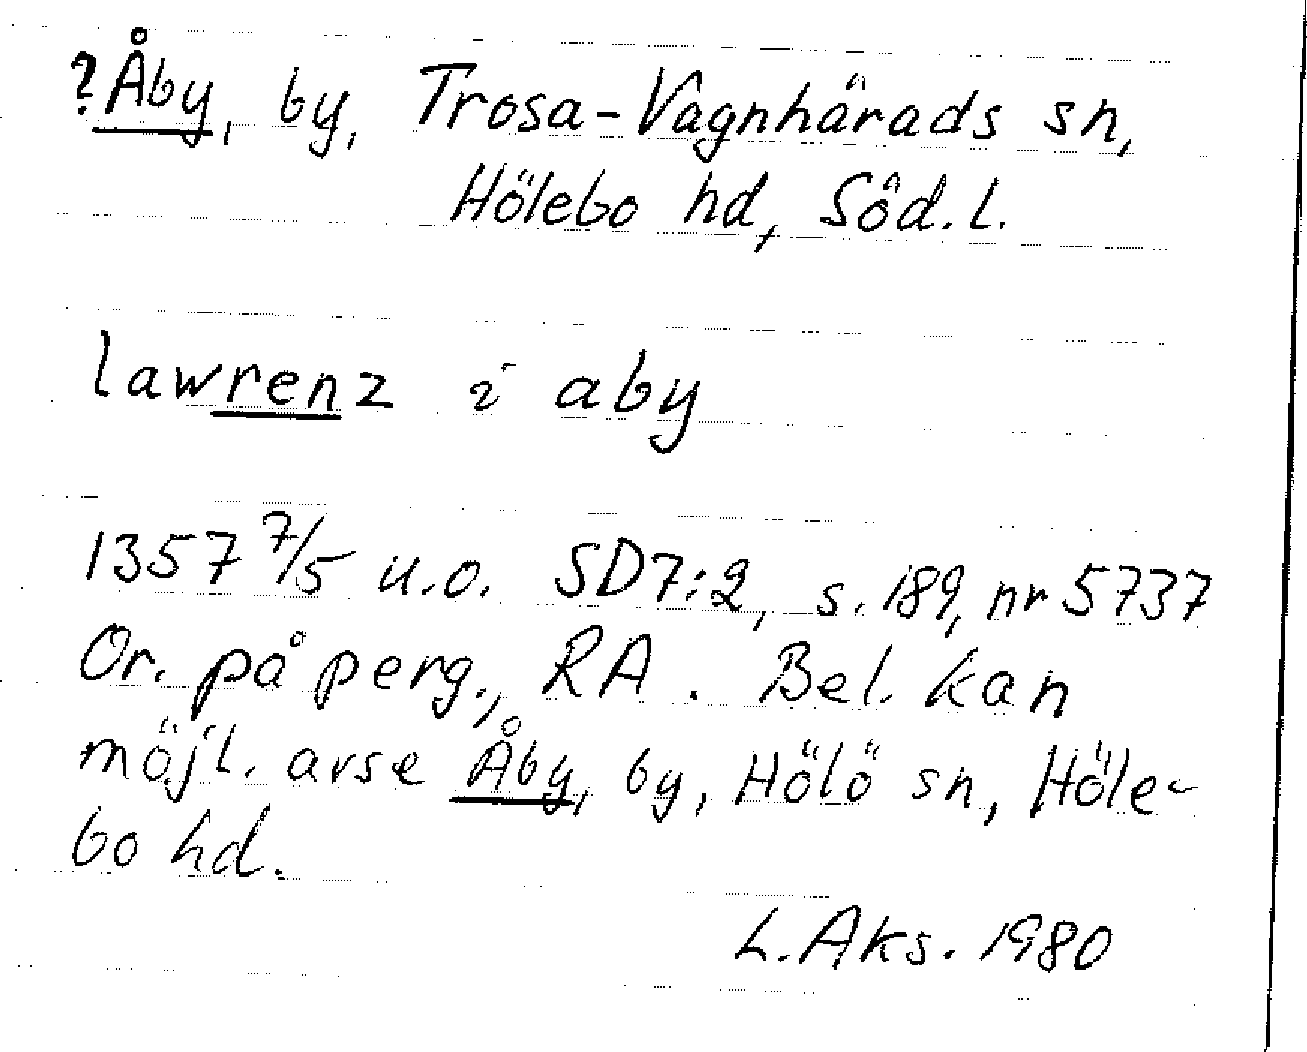 ?Åby, by, Trosa-Vagnhärads sn,
Hölebo hd, Söd.l.
lawrenz i aby
1357 7/5 u.o. SD7:2, s. 189, nr 5737
Or. på perg., RA. Bel. kan
möjl. avse Åby, by, Hölö sn, Höle-
bo hd.
L.Aks. 1980